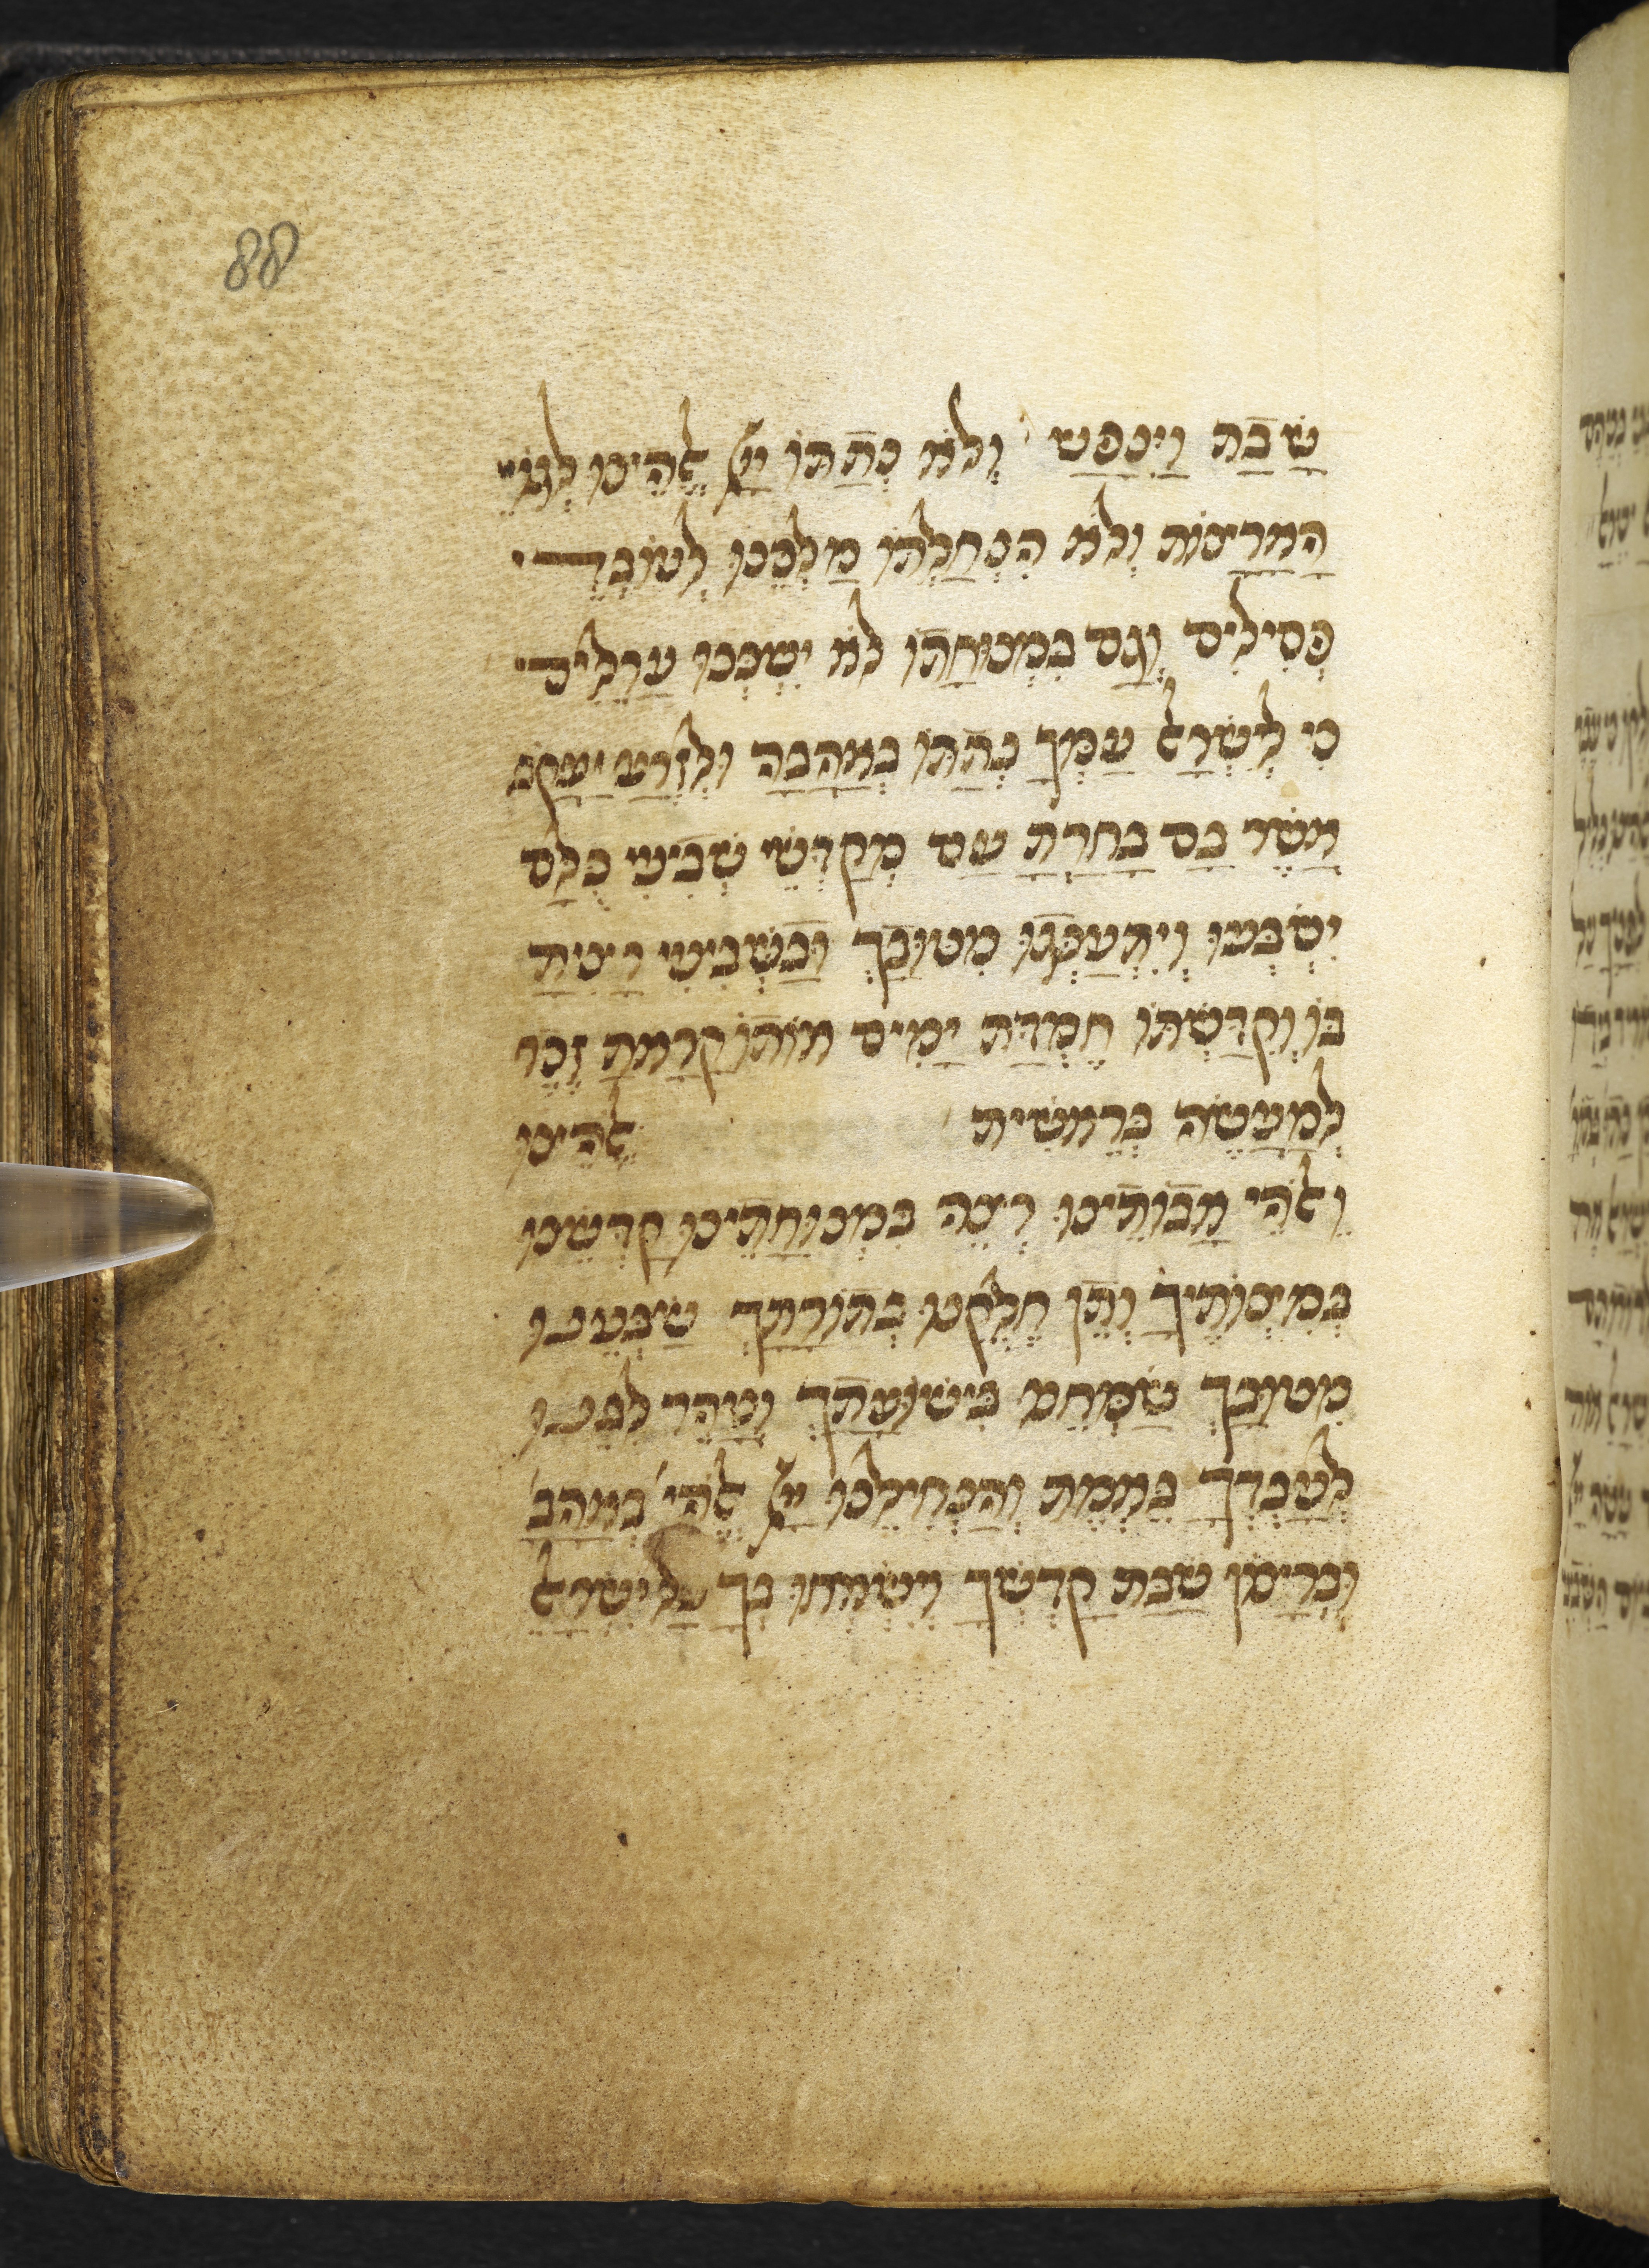 88
שָׁבַּת וַיִּנָּפַשׁ וְלֹא נְתַתּוֹ יְיָ אֱלֹהֵינוּ לְגוֹיֵי
הָאֲרָצוֹת וְלֹא הִנְחַלְתּוֹ מַלְכֵּנוּ לְעוֹבְדֵי
פְּסִילִים וְגַם בִּמְנוּחָתוֹ לֹא יִשְׁכְּנוּ עֲרֵלִים
כִּי לְיִשְׂרָאֵל עַמְּךָ נְתַתּוֹ בְּאַהֲבָה וּלְזֶרַע יַעֲקֹב
אֲשֶׁר בָּם בָּחָרְתָּ עַם מְקַדְּשֵׁי שְׁבִיעִי כֻּלָּם
יִשְׂבְּעוּ וְיִתְעַנְּגוּ מִטּוּבָךְ וּבַשְּׁבִיעִי רָצִיתָ
בּוֹ וְקִדַּשְׁתּוֹ חֶמְדַּת יָמִים אוֹתוֹ קָרָאתָ זֵכֶר
לְמַעֲשֵׂה בְּרֵאשִׁית אֱלֹהֵינוּ
וֵאלֹהֵי אֲבוֹתֵינוּ רְצֵה בִּמְנוּחָתֵינוּ קַדְּשֵׁנוּ
בְּמִצְוֹתֶיךָ וְתֵן חֶלְקֵנוּ בְּתוֹרָתָךְ שַׂבְּעֵנוּ
מִטּוּבָךְ שַׂמְּחֵנוּ בִּישׁוּעָתָךְ וְטַהֵר לִבֵּנוּ
לְעָבְדְּךָ בֶּאֱמֶת וְהַנְחִילֵנוּ יְיָ אֱלֹהֵי׳ בְּאַהֲבָ׳
וּבְרָצוֹן שַׁבַּת קָדְשֶׁךָ וְיִשְׂמְחוּ בְךָ כָּל יִשְׂרָאֵל